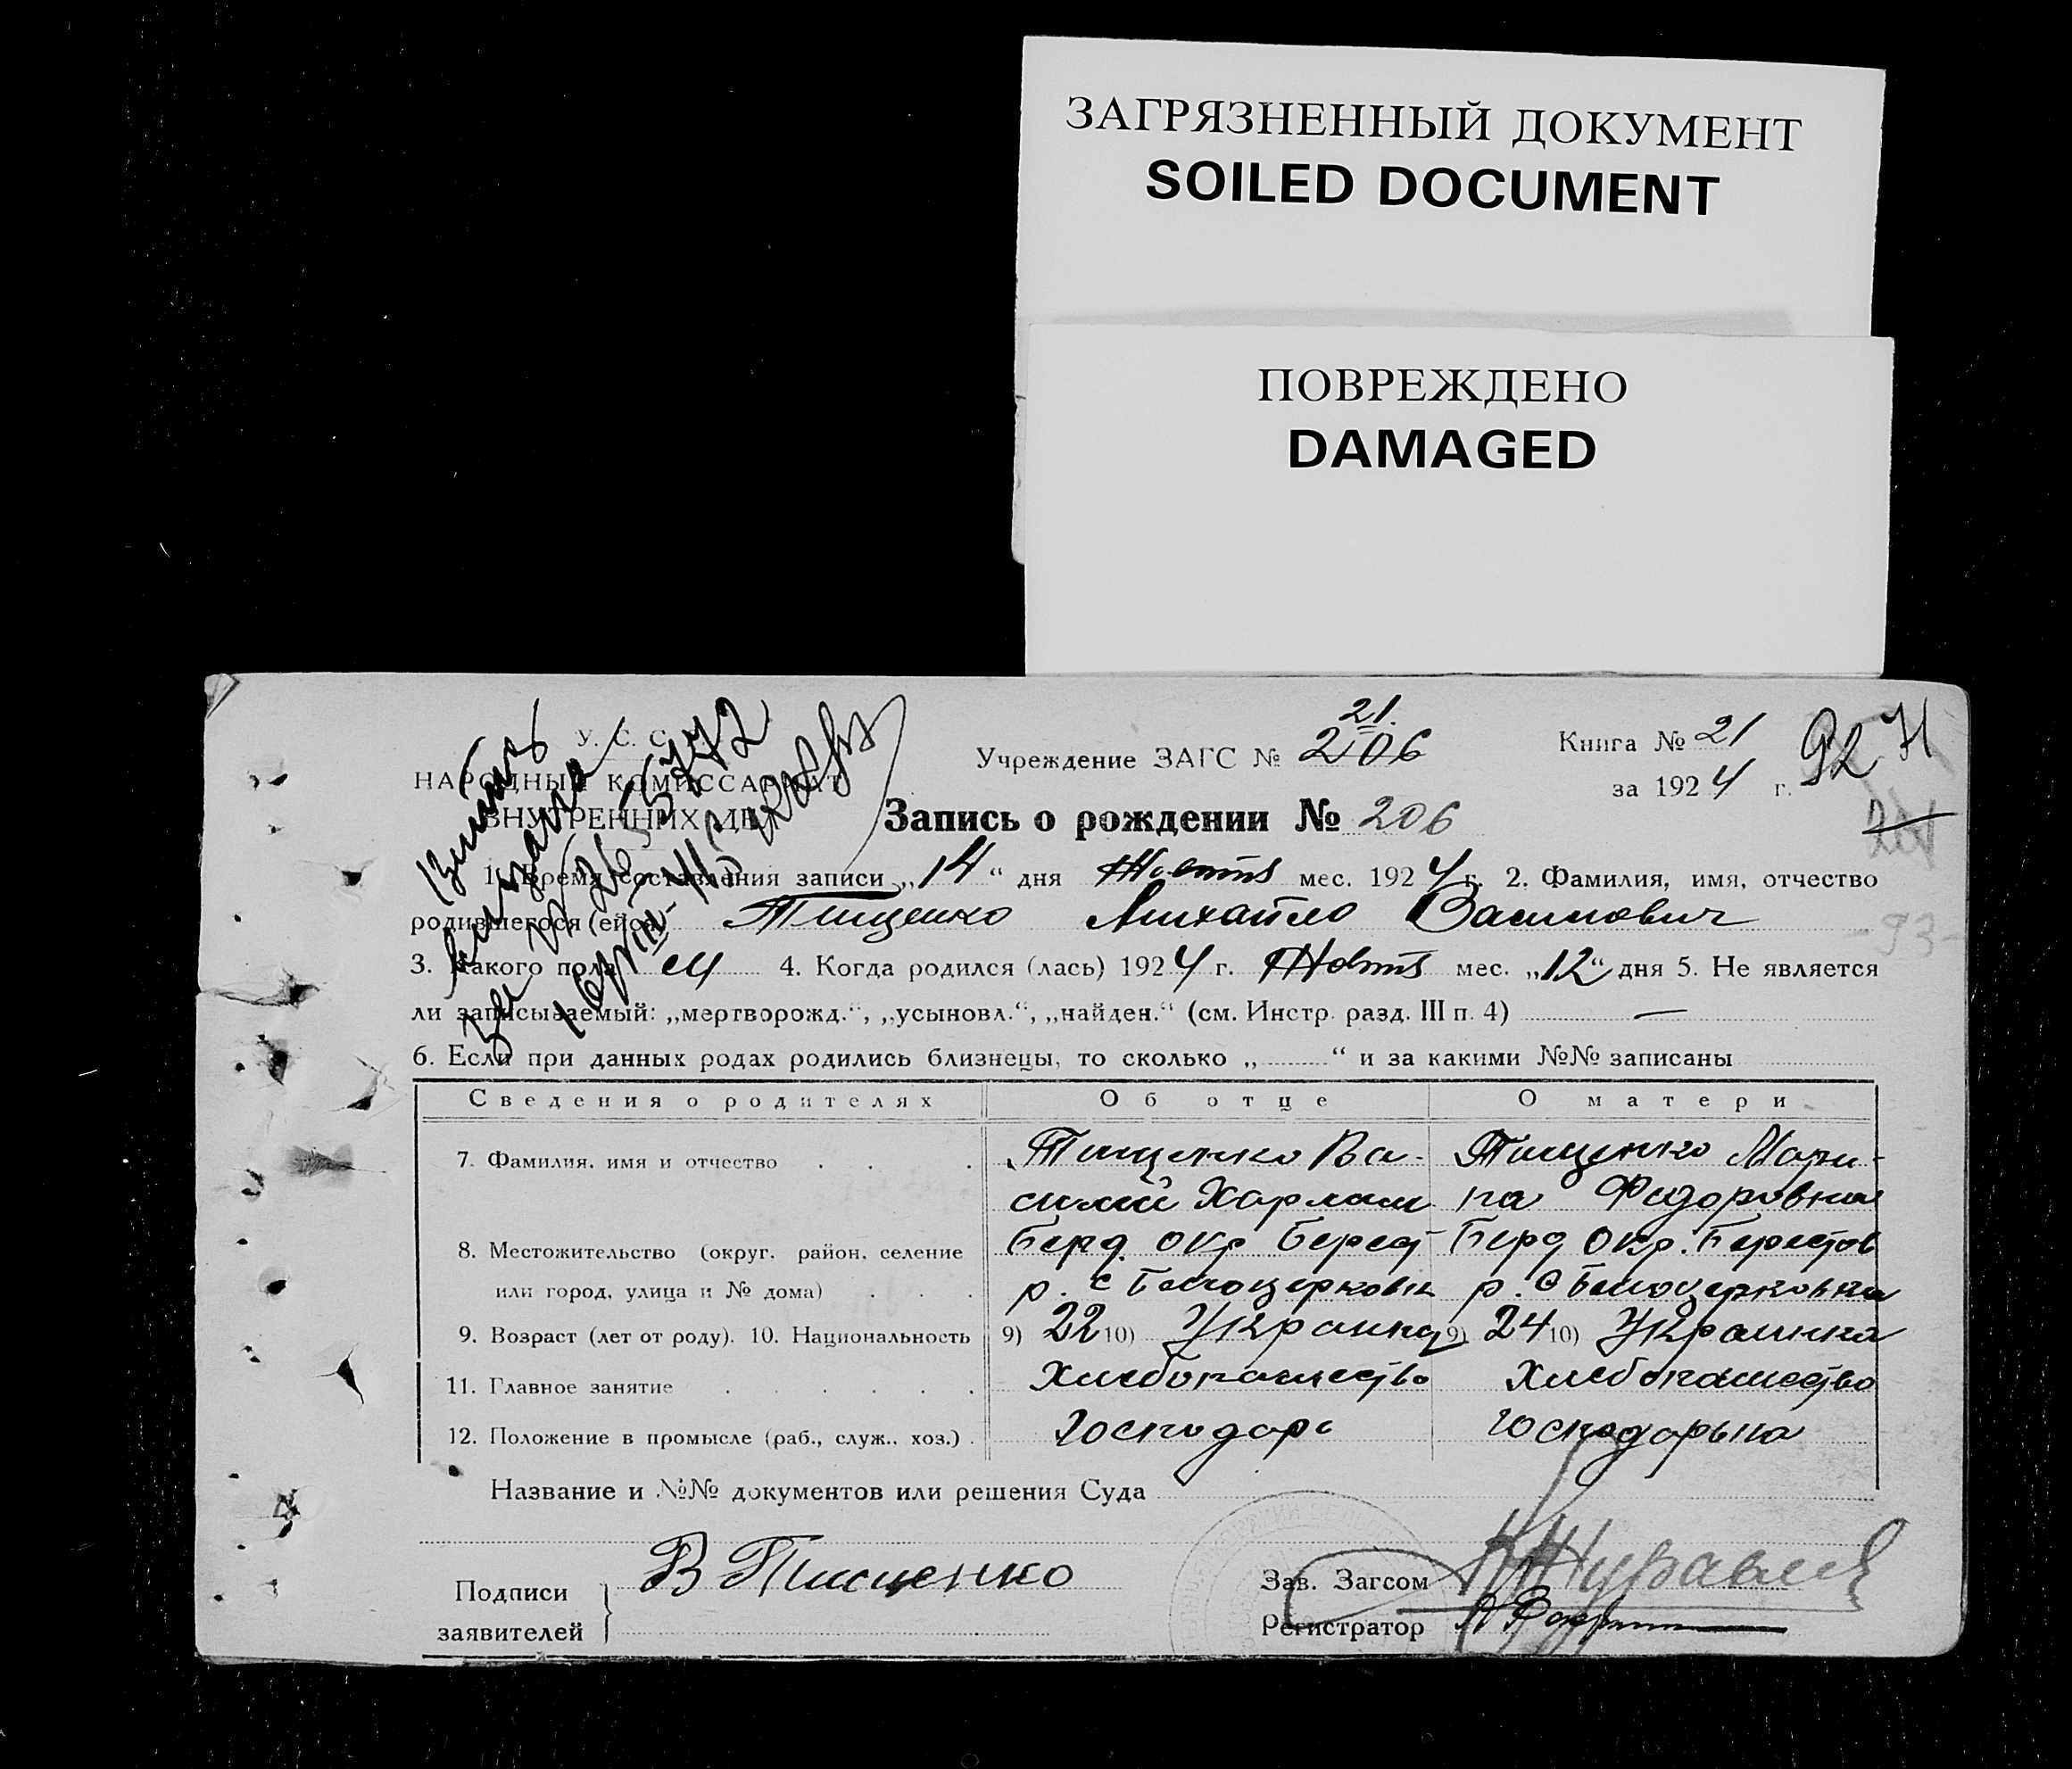 ЗАГРЯЗНЕННЫЙ ДОКУМЕНТ
SOILED DOCUMENT
ПОВРЕЖДЕНО
DAMAGED
У. С. С.
НАРОДНЫЙ КОМИССАРИАТ
ВНУТРЕННИХ ДЕЛ
21.
Учреждение ЗАГС № 206
Книга № 21
за 1924 г.
92
Запись о рождении № 206
1. Время составления записи „14“ дня Жовтня мес. 1924 г. 2. Фамилия, имя, отчество
родившегося (ейся) Тищенко Михайло Василович
93
3. Какого пола М 4. Когда родился (лась) 1924 г. Жовтня мес. „12“ дня 5. Не является
ли записываемый: „мертворожд.“, „усыновл.“, „найден.“ (см. Инстр. разд. III п. 4) —
6. Если при данных родах родились близнецы, то сколько „ “ и за какими №№ записаны
Сведения о родителях Об отце О матери
7. Фамилия, имя и отчество Тищенко Ва- Тищенко Мари-
силий Харлам на Федоровна
8. Местожительство (округ, район, селение Берд. окр Берест Берд Окр. Берестов
или город, улица и № дома) р. с Белоцерковк р. с Белоцерковка
9. Возраст (лет от роду). 10. Национальность 9) 22 10) Украинц 9) 24 10) Украинка
11. Главное занятие Хлебопашество Хлебопашество
12. Положение в промысле (раб., служ., хоз.) Господарь Господарына
Название и №№ документов или решения Суда
Подписи
заявителей
В Тищенко
Зав. Загсом
Регистратор